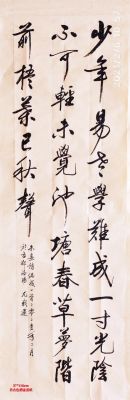 少年易老學難成一寸光陰
不可輕未覺池塘春草夢階
前梧葉已秋聲
朱熹詩偶成一首二〇二一年二月